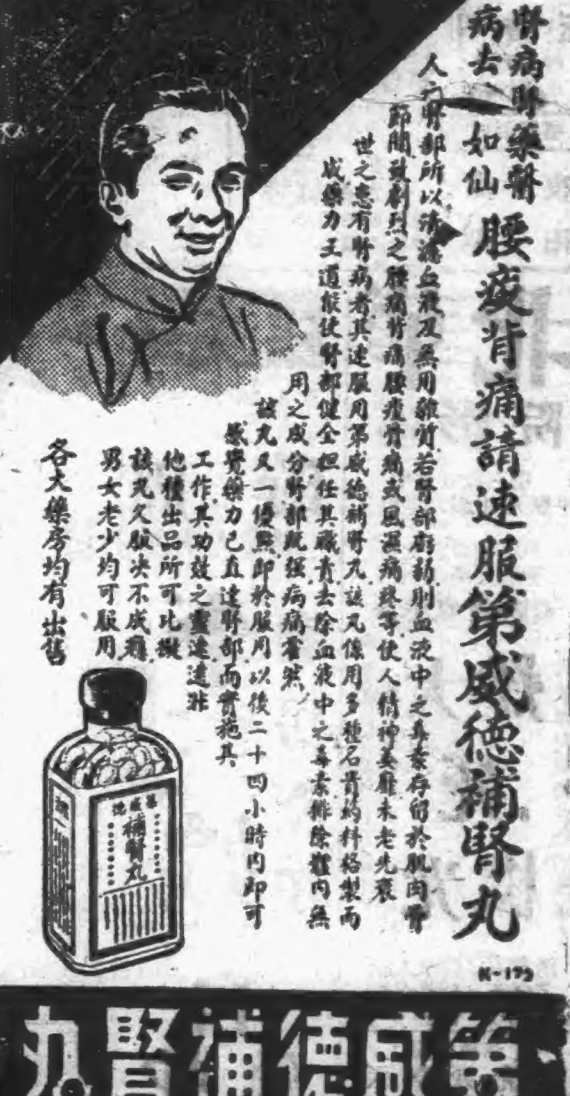 腎病腎藥醫
病去如仙
腰痠背痛請速服第威德補腎丸
人之腎部所以清濾血液及無用雜質若腎部衰弱則血液中之毒素存留於肌肉骨
節間致劇烈之腰痛背痛腰痠骨痛或風濕痛疼等使人精神萎靡未老先衰
世之患有腎病者其速服用第威德補腎丸該丸係用多種名貴葯料格製而
成藥力王道能使腎部健全担任其職責去除血液中之毒素排除體內無
用之成分腎部既強病痛霍然
該丸又一優點即於服用以後二十四小時内即可
感覺藥力已直達腎部而實施其
工作其功效之靈速遠非
他種出品所可比擬
該丸久服决不成癮
男女老少均可服用
各大藥房均有出售
第威德
補腎丸
K-172
第威德補腎丸